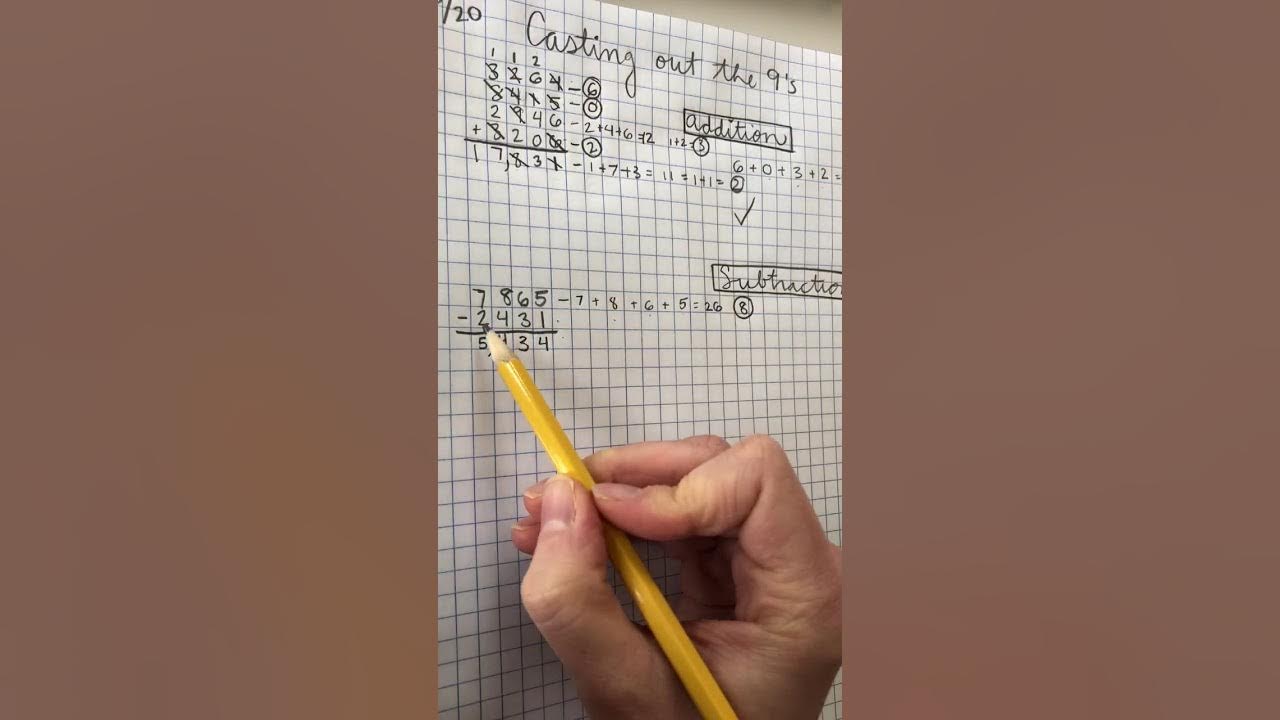 /20
Casting out the 9's
1 1 2
3 2 6 4 - 6
8 4 1 5 - 0
2 9 4 6 - 2+4+6=12 1+2=3
+ 3 2 0 6 - 2
17,831 - 1+7+3= 11 = 1+1= 2
addition
6+0+3+2=
✓
Subtractio
7 8 6 5 - 7 + 8 + 6 + 5 = 26 8
- 2 4 3 1
5, 3 4